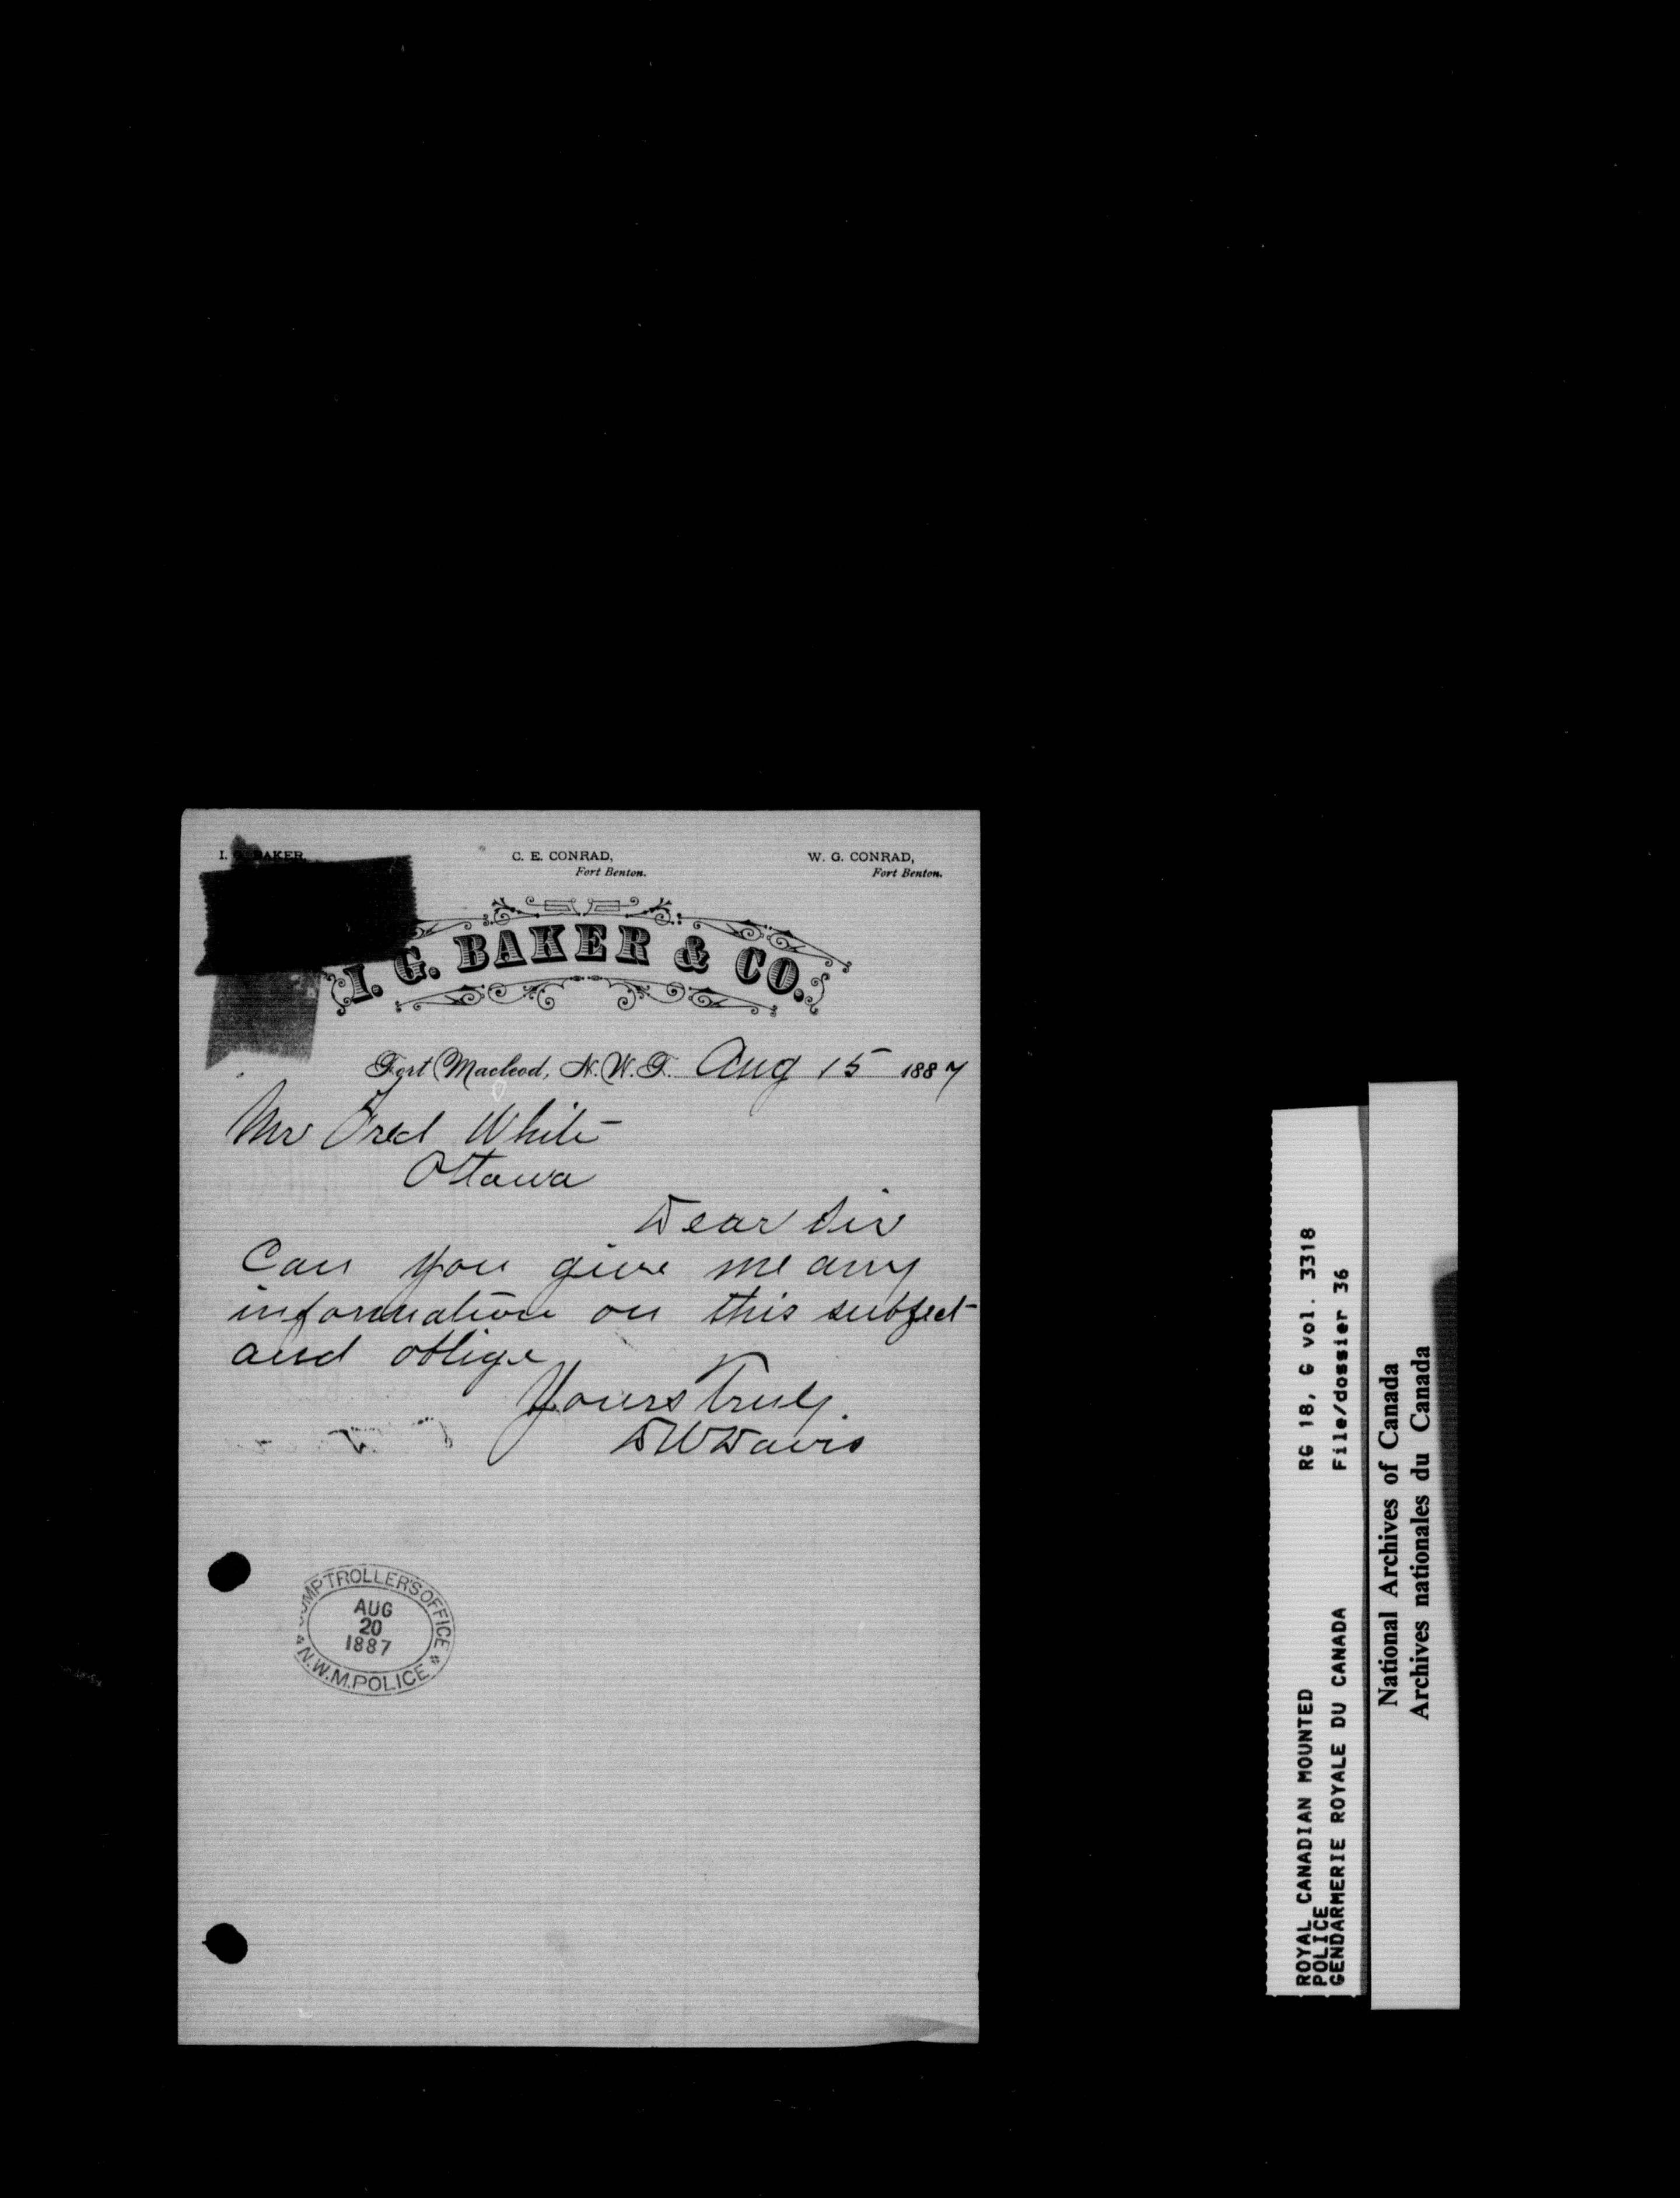 I. G. BAKER,
C. E. CONRAD,
Fort Benton.
W. G. CONRAD,
Fort Benton.
I. G. BAKER & CO.
Fort Macleod, N. W. T. Aug 15 1887
Mr Fred White
Ottawa
Dear Sir
Can you give me any
information on this subject
and oblige
Yours Truly.
DW Davis
COMPTROLLER'S OFFICE
AUG
20
1887
N.W.M. POLICE
ROYAL CANADIAN MOUNTED RG 18, G vol. 3318
POLICE
GENDARMERIE ROYALE DU CANADA File/dossier 36
National Archives of Canada
Archives nationales du Canada